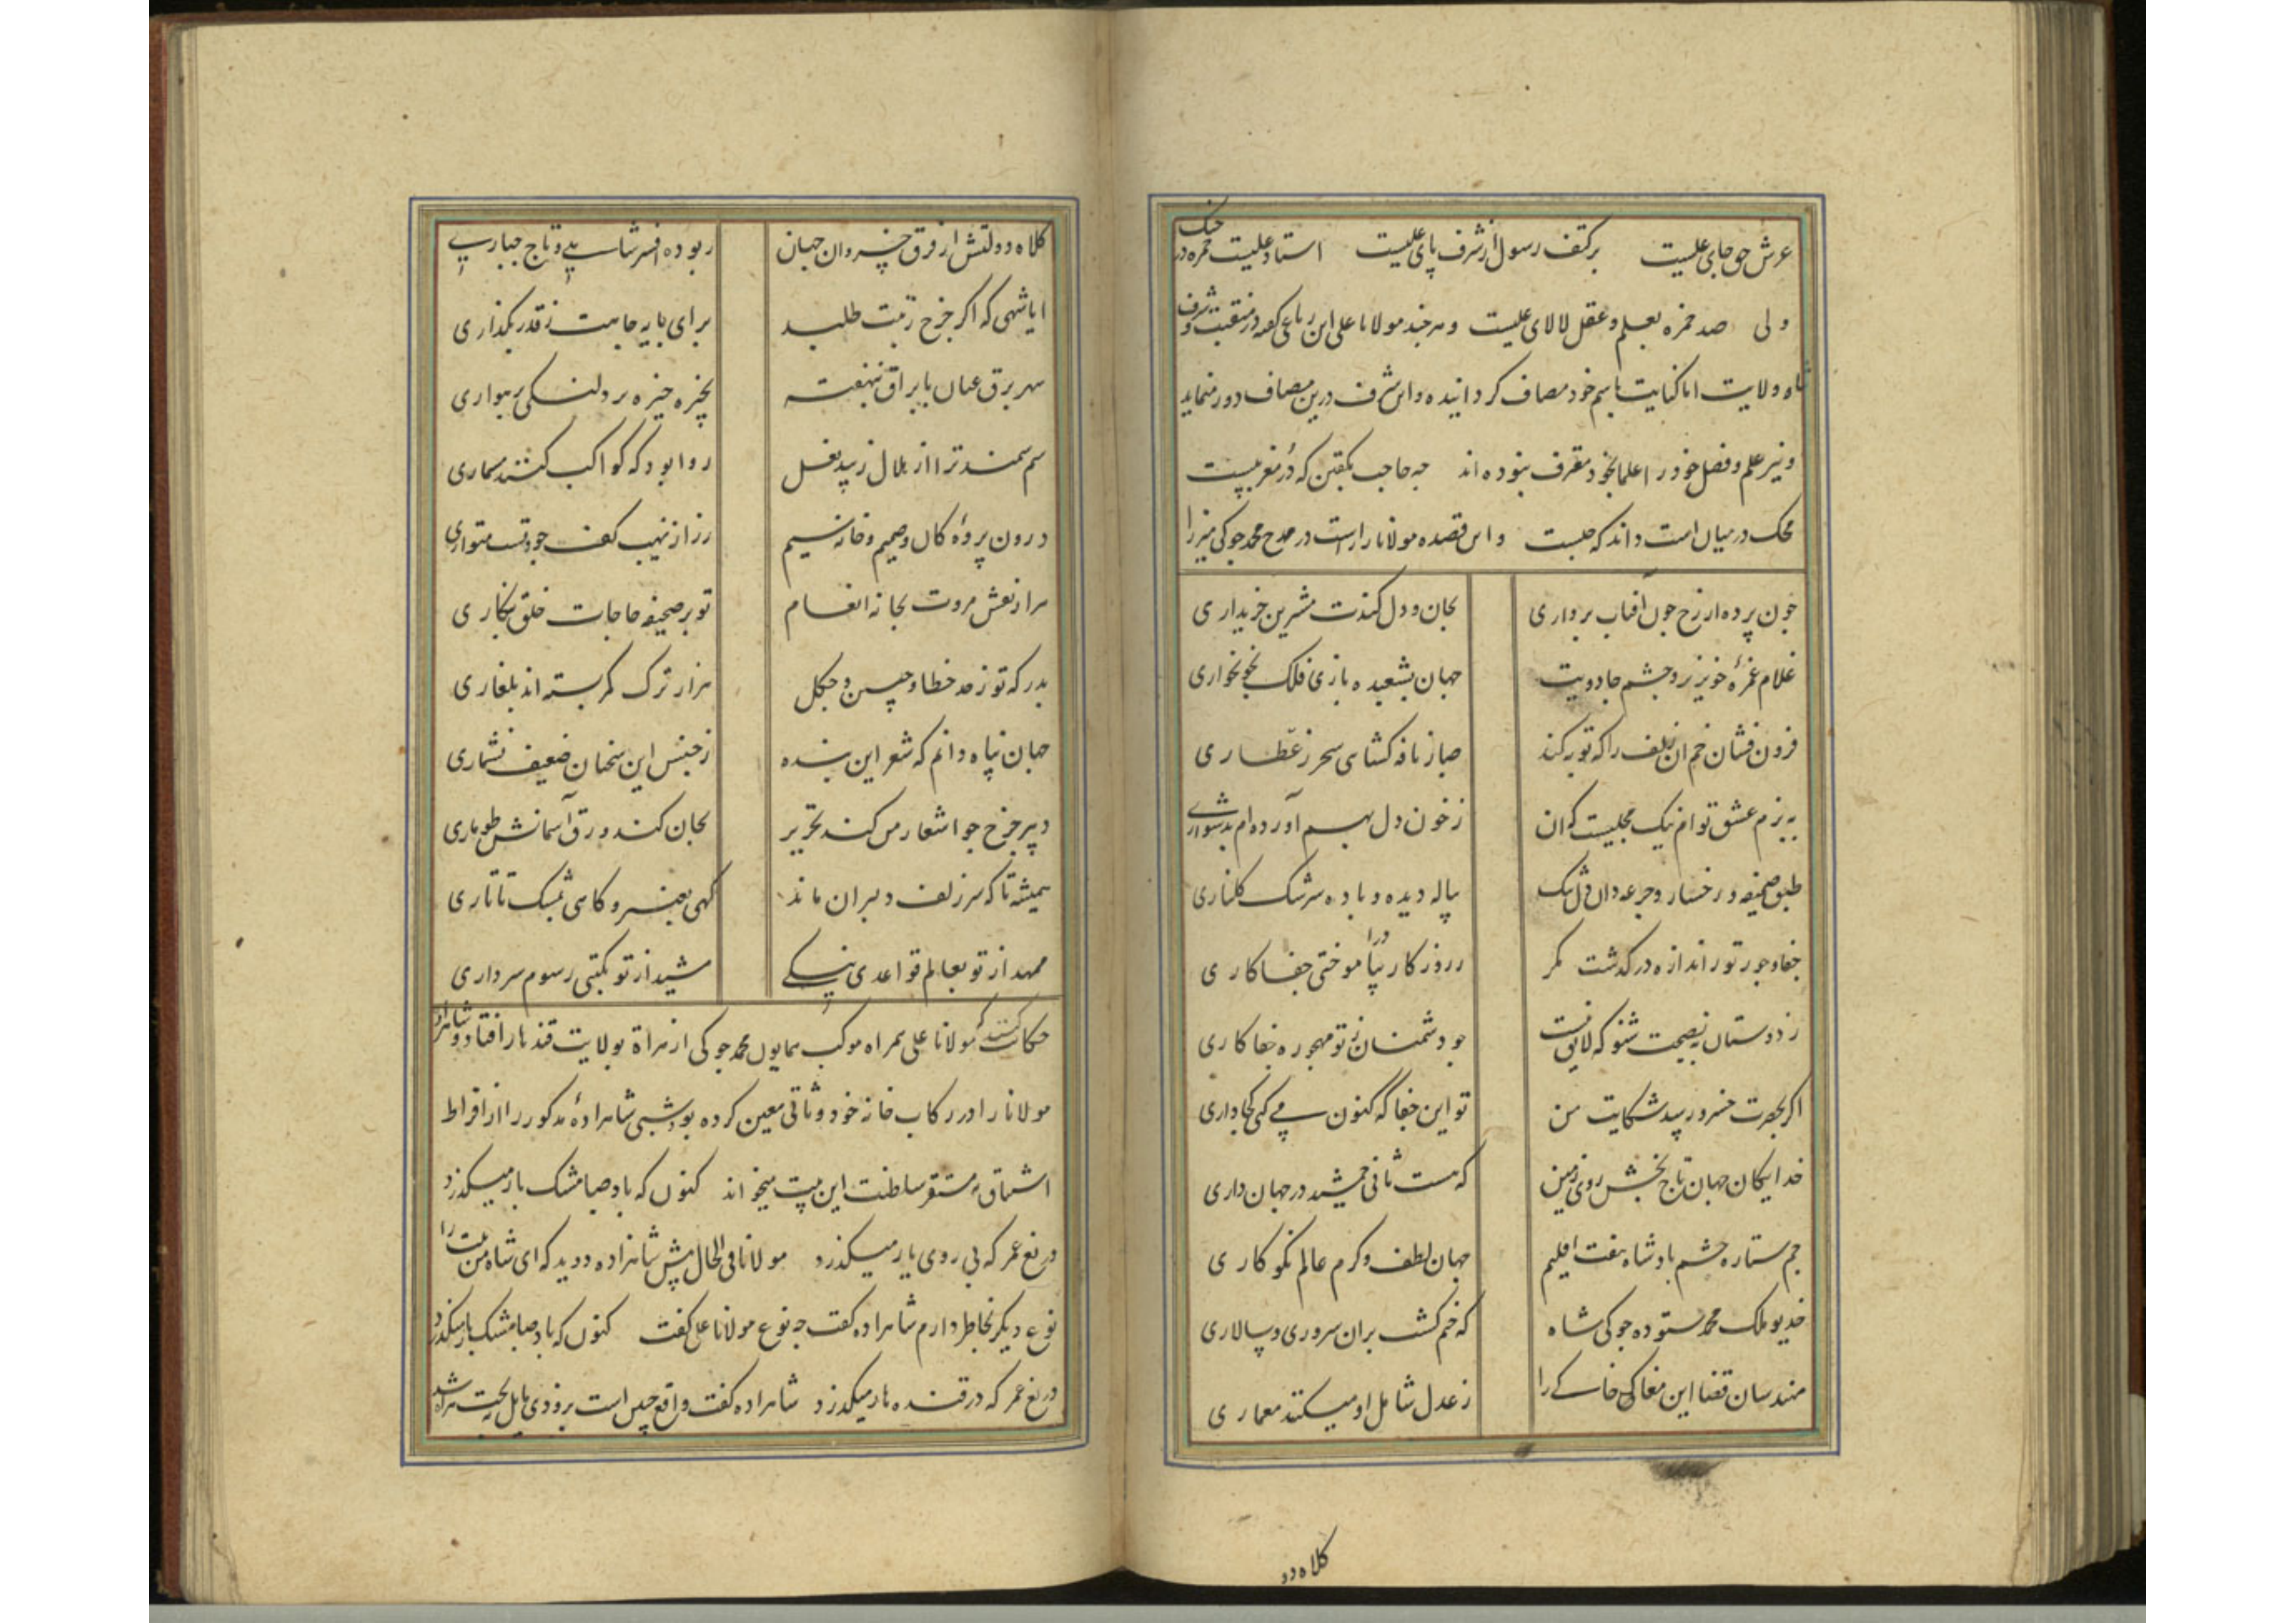 عرش حق جای علیست بر کتف رسول از شرف پای علیست استاد علیست حمزه در جنک
ولی صد حمزه بعلم و عقل لالای علیست و هر چند مولانا علی این رباعی که در منقبت و شرف
شاه ولایت اما کنایت باسم خود مصاف کردانیده و این شرف درین مصاف دور مینماید
و نیز علم و فضل خود را علما بخود معرف نبوده اند چه حاجب بکفتن که زر مغربیست
محک در میان است داند که چیست و این قصیده مولانا راست در مدح محمد جوکی میرزا
جون پرده از رخ جون آفتاب برداری بجان و دل کندت مشتری خریداری
غلام غمزهٔ خونریز و چشم جادویت جهان بشعبده بازی فلک بخونخواری
فزون فشان خم ان زلف را که توبه کند صبا ز نافه کشای سحر ز عطاری
به بزم عشق توام نیک مجلسیت که ان ز خون دل بهم آورده ام بدشواری
طبق صحیفه رخسار و جرعه دان دل تنک پیاله دیده و باده سرشک کلناری
جفا و جور تو ز اندازه در کذشت مکر ز روزکار بیاموختی جفاکاری
ز دوستان به نصیحت شنو که لایق نیست جو دشمنان ز تو مهجوره جفاکاری
اکر بحضرت خسرو رسید شکایت من تو این جفا که کنون می کنی کجا داری
خدایکان جهان تاج بخش روی زمین که هست ثانی جمشید در جهان داری
جم ستاره حشم پادشاه هفت اقلیم جهان لطف و کرم عالم نکوکاری
خدیو ملک محمد ستوده جوکی شاه که ختم کشت بران سروری و سپالاری
مهندسان قضا این مغاک خاکی را ز عدل شامل او میکنند معماری
کلاه دو
کلاه دولتش از فرق خسروان جهان ربوده افسر شاهی و تاج جباری
ایا شهی که اکر چرخ رتبت طلبد برای پایه جاهت ز قدر بکذاری
سهر برق عنان با براق نهفته بخیره خیره بر دلنکی رهواری
سم سمند ترا از هلال زیبد نعل روا بود که کواکب کنند مسماری
درون پردهٔ کان و صمیم و خانه سیم زر از نهیب کف جودتست متواری
مراد نقش مروت بخانه انعام تو بر صحیفه حاجات خلق بنکاری
بدرکه تو ز حد خطا و چین و چکل هزار ترک کمر بسته اند بلغاری
جهان پناه دانم که شعر این بنده ز جنس این سخنان ضعیف نشماری
دبیر چرخ جو اشعار من کند تحریر بجان کند ورق آسمانش طوماری
همیشه تا که سر زلف دلبران ماند کهی بعنبر و کاهی بمشک تاتاری
ممهد از تو بعالم قواعد نیکی مشید از تو بکیتی رسوم سرداری
حکایت کنند که مولانا علی همراه موکب همایون محمد جوکی از هراة بولایت قندهار افتاد و شاهزاده
مولانا را در رکاب خانه خود وثاقی معین کرده بود شبی شاهزادهٔ مذکور را از افراط
اشتیاق به مستقر سلطنت این بیت میخواند کنون که باد صبا مشک بار میکذرد
دریغ عمر که بی روی یار میکذرد مولانا فی الحال پیش شاهزاده دوید که ای شاه من بیت را
نوع دیکر بخاطر دارم شاهزاده کفت چه نوع مولانا علی کفت کنون که باد صبا مشک بار میکذرد
دریغ عمر که در قندهار میکذرد شاهزاده کفت واقع چنین است بزودی مایل تخت هراة شد